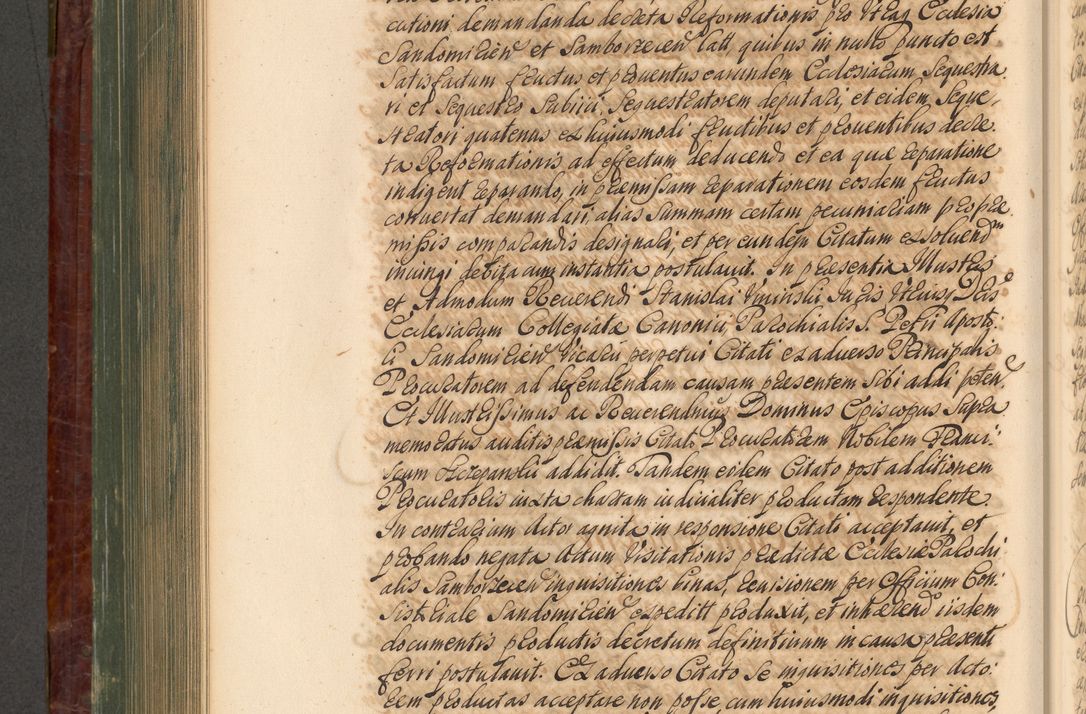 cutioni demandanda decreta Reformationis pro Utraq Ecclesia
Sandomirien et Samborzecen latt quibus in nullo puncto est
Satisfactum fructus et proventus earundem Ecclesiarum Sequestra
ri et Sequestro Subiici, Sequestratorem deputari, et eidem Seque,
stratori quatenus ex huiusmodi fructibus et proventibus decre
ta Reformationis ad effectum deducendo et ea quæ reparatione
indigent reparando, in præmissam reparationem eosdem fructus
convertat demandari, alias Summam certam pecuniariam pro præ
missis comparandis designari, et per eundem Citatum exsolvendm
iniungi debita cum instantia postulavit. In præsentia Illustris
et Admodum Reverendi Stanislai Juris Utriusq Dris
Ecclesiarum Collegiatæ Canonici, Parochialis S. Petri Aposto
li Sandomirien Vicarii perpetui Citati ex adverso Principalis
Procuratorem ad defendendam causam præsentem Sibi addi peten.
Et Illustrissimus ac Reverendissimus Dominus Episcopus Supra
memoratus auditis præmissis Citato Procuratorem Nobilem Franci,
scum addidit. Tandem eodem Citato post additionem
Procuratoris iuxta chartam iudicialiter productam respondente.
In contrarium Actor agnita in responsione Citati acceptavit, et
probando negata Actum Visitationis prædictæ Ecclesiæ Parochi
alis Samborzecen inquisitiones binas, revisionem per Officium Con:
Sistoriale Sandomirien expeditt produxit, et inhærend iisdem
documentis productis decretum definitivum in causa præsenti
ferri postulavit. Ex adverso Citato Se inquisitiones per Acto:
rem productas acceptare non posse, cum huiusmodi inquisitiones